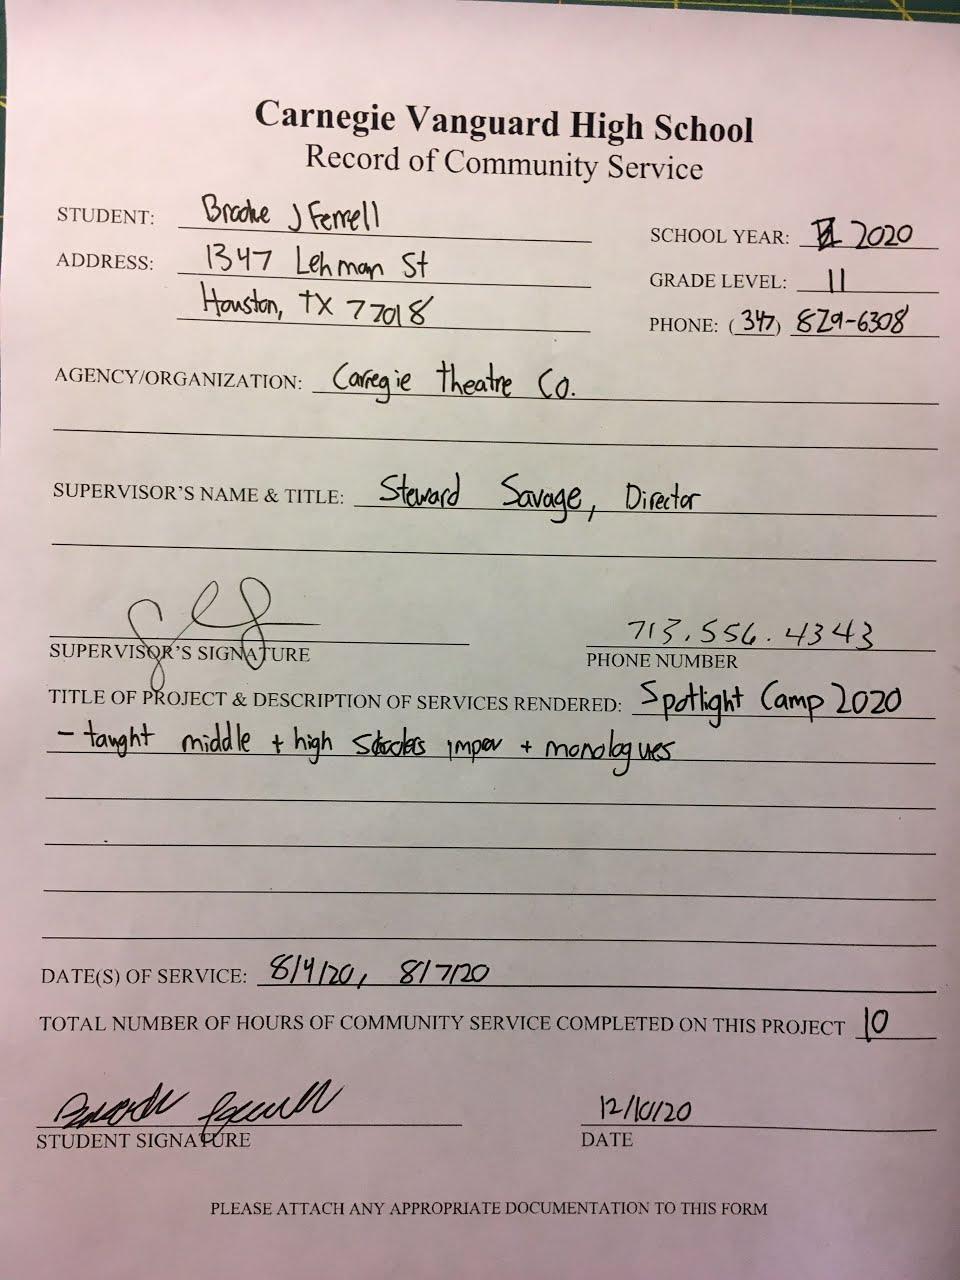 Carnegie Vanguard High School
Record of Community Service
STUDENT: Brooke J Ferrell
SCHOOL YEAR: 2020
ADDRESS: 1347 Lehman St
GRADE LEVEL: 11
Houston, TX 77018
PHONE: (347) 829-6308
AGENCY/ORGANIZATION: Caregie Theatre Co.
SUPERVISOR'S NAME & TITLE: Steward Savage, Director
713.556.4343
SUPERVISOR'S SIGNATURE
PHONE NUMBER
TITLE OF PROJECT & DESCRIPTION OF SERVICES RENDERED: Spotlight Camp 2020
- taught middle + high impov + monologues
DATE(S) OF SERVICE: 8/4/20, 8/7/20
TOTAL NUMBER OF HOURS OF COMMUNITY SERVICE COMPLETED ON THIS PROJECT 10
12/10/20
STUDENT SIGNATURE
DATE
PLEASE ATTACH ANY APPROPRIATE DOCUMENTATION TO THIS FORM